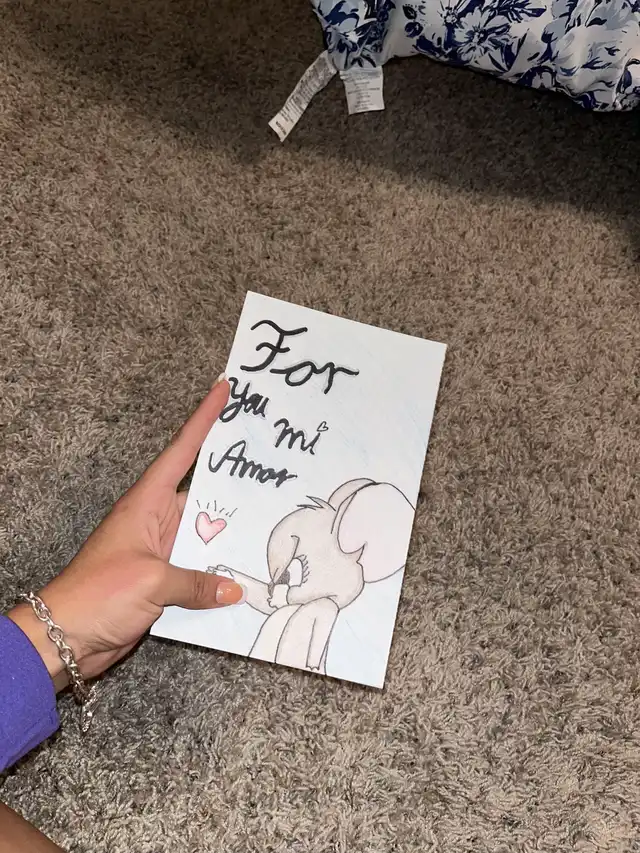 For
You
mi
Amor